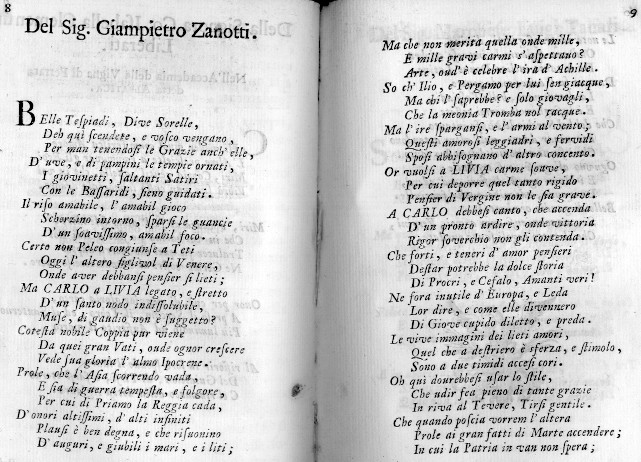 8
Del Sig. Giampietro Zanotti.
BElle Tespiadi, Dive Sorelle,
Deh qui scendete, e vosco vengano,
Per man tenendosi le Grazie anch' elle,
D' uve, e di pampini le tempie ornati,
I giovinetti, saltanti Satiri
Con le Bassaridi, sieno guidati.
Il riso amabile, l' amabil gioco
Scherzino intorno, sparsi le guancie
D' un soavissimo, amabil foco.
Certo non Peleo congiunse a Teti
Oggi l' altero figlivol di Venere,
Onde aver debbansi pensier sì lieti;
Ma CARLO a LIVIA legato, e stretto
D' un santo nodo indissolubile,
Muse, di gaudio non è suggetto?
Cotesta nobile Coppia pur viene
Da quei gran Vati, onde ognor crescere
Vede sua gloria l' almo Ipocrene.
Prole, che l' Asia scorrendo vada,
E sia di guerra tempesta, e folgore,
Per cui di Priamo la Reggia cada,
D' onori altissimi, d' alti infiniti
Plausi è ben degna, e che risuonino
D' auguri, e giubili i mari, e i liti;
9
Ma che non merita quella onde mille,
E mille gravi carmi s' aspettano?
Arte, ond' è celebre l' ira d' Achille.
So ch' Ilio, e Pergamo per lui sen giacque,
Ma chi l' saprebbe? e solo giovagli,
Che la meonia Tromba nol tacque.
Ma l' ire spargansi, e l' armi al vento;
Questi amorosi leggiadri, e fervidi
Sposi abbisognano d' altro concento.
Or vuolsi a LIVIA carme soave,
Per cui deporre quel tanto rigido
Pensier di Vergine non le sia grave.
A CARLO debbesi canto, che accenda
D' un pronto ardire, onde vittoria
Rigor soverchio non gli contenda.
Che forti, e teneri d' amor pensieri
Destar potrebbe la dolce storia
Di Procri, e Cefalo, Amanti veri!
Ne fora inutile d' Europa, e Leda
Lor dire, e come elle divennero
Di Giove cupido diletto, e preda.
Le vive immagini dei lieti amori,
Quel che a destriero è sferza, e stimolo,
Sono a due timidi accesi cori.
Oh qui dourebbesi usar lo stile,
Che udir fea pieno di tante grazie
In riva al Tevere, Tirsi gentile.
Che quando poscia vorrem l' altera
Prole ai gran fatti di Marte accendere;
In cui la Patria in van non spera;